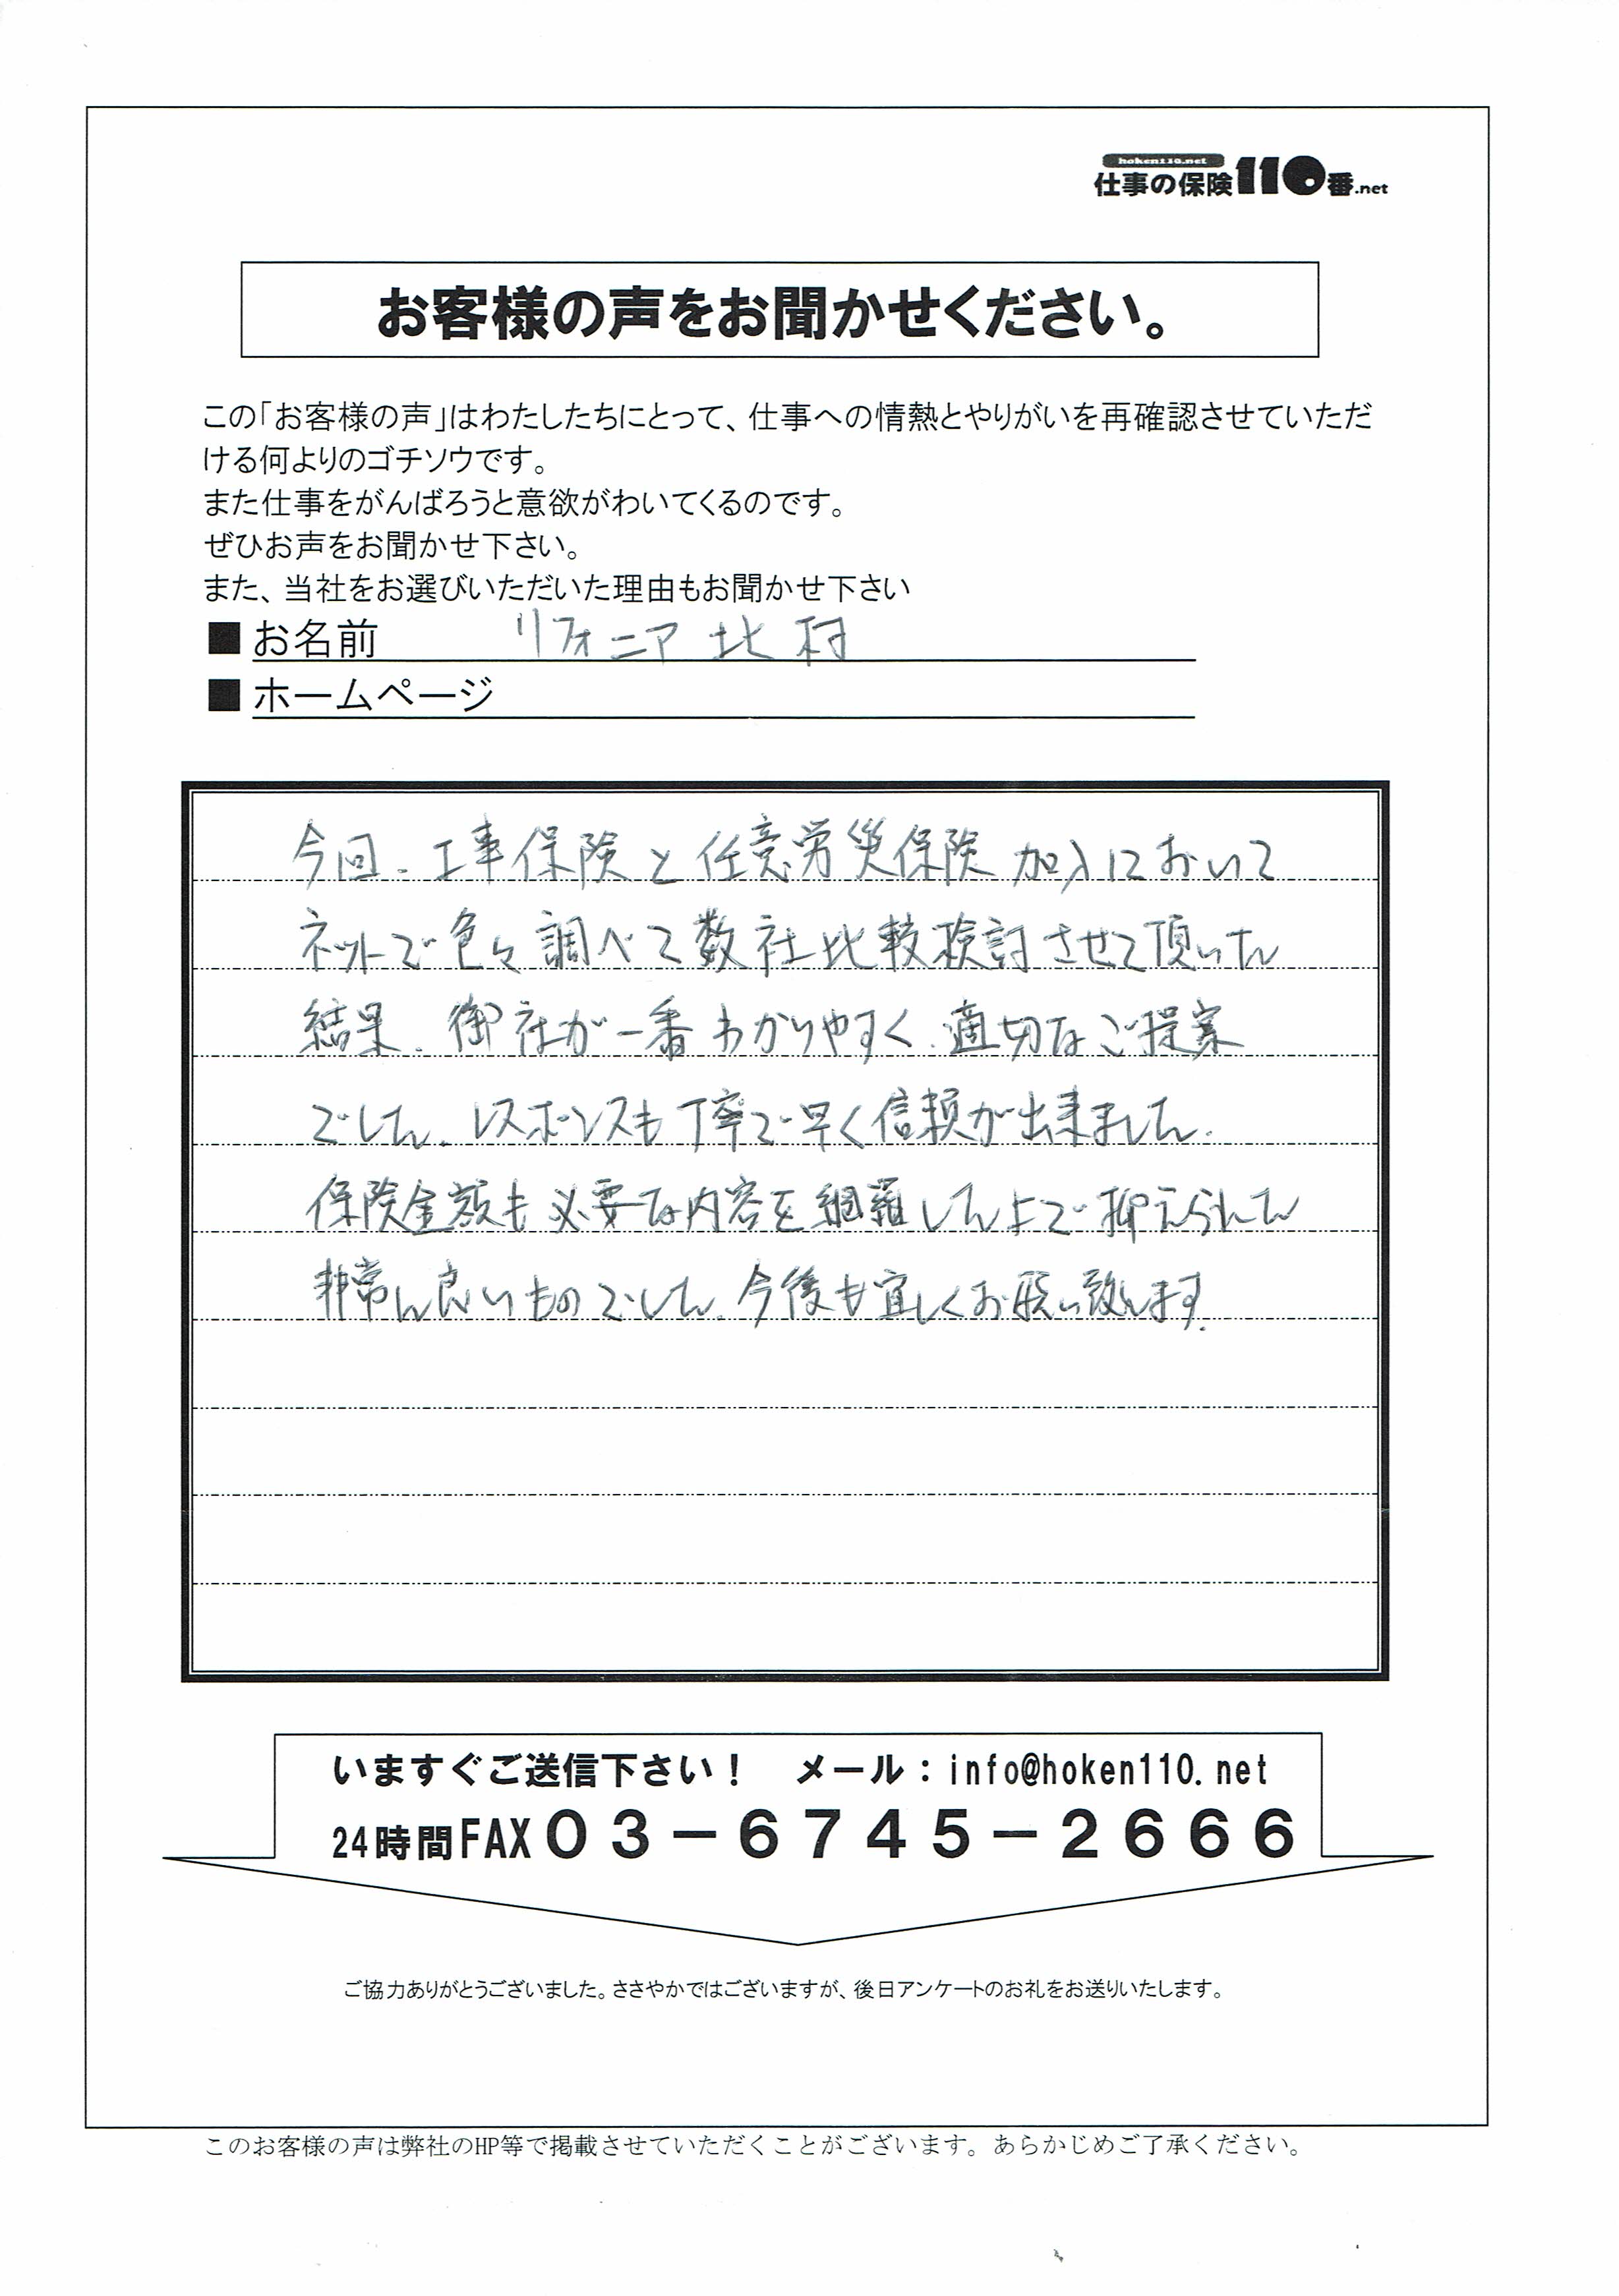 hoken110.net
仕事の保険110番.net
お客様の声をお聞かせください。
この「お客様の声」はわたしたちにとって、仕事への情熱とやりがいを再確認させていただ
ける何よりのゴチソウです。
また仕事をがんばろうと意欲がわいてくるのです。
ぜひお声をお聞かせ下さい。
また、当社をお選びいただいた理由もお聞かせ下さい
■お名前 リフォニア 北村
■ホームページ
今回、工事保険と任意労災保険加入において
ネットで色々調べて数社比較検討させて頂いた
結果、御社が一番わかりやすく、適切なご提案
でした。レスポンスも丁寧で早く信頼が出来ました。
保険金額も必要な内容を網羅した上で抑えられた
非常に良いものでした。今後も宜しくお願い致します。
いますぐご送信下さい! メール:info@hoken110.net
24時間FAX03-6745-2666
ご協力ありがとうございました。ささやかではございますが、後日アンケートのお礼をお送りいたします。
このお客様の声は弊社のHP等で掲載させていただくことがございます。あらかじめご了承ください。